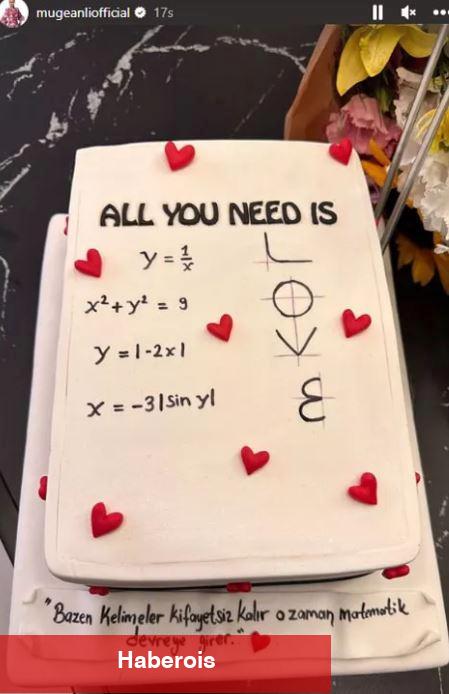 mugeanliofficial 17s
ALL YOU NEED IS
y = 1/x
x² + y² = 9
y = |-2x|
x = -3|sin y|
"Bazen Kelimeler kifayetsiz kalır o zaman matematik
devreye girer."
Haberois